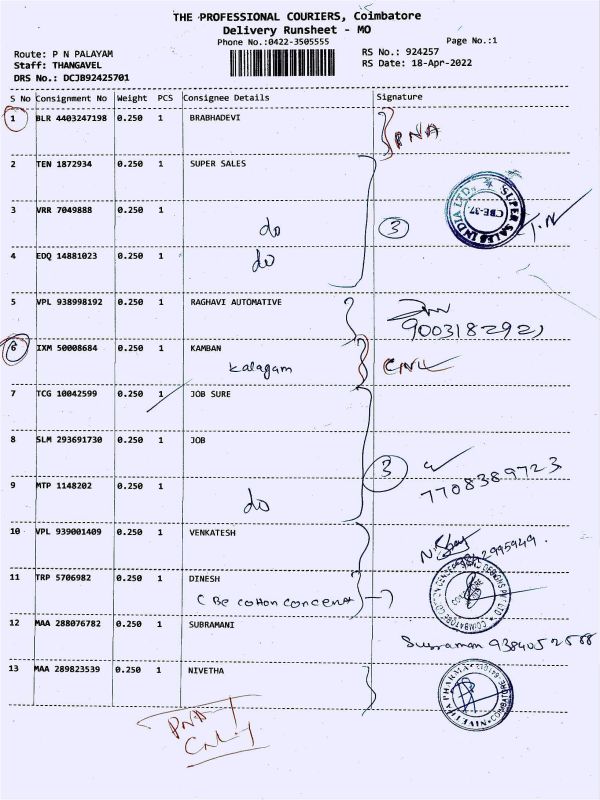 THE PROFESSIONAL COURIERS, Coimbatore
Delivery Runsheet - MO
Phone No.:0422-3505555
Page No.:1
Route: P N PALAYAM
RS No.: 924257
Staff: THANGAVEL
RS Date: 18-Apr-2022
DRS No.: DCJB92425701
S No Consignment No Weight PCS Consignee Details Signature
1 BLR 4403247198 0.250 1 BRABHADEVI
PNA
2 TEN 1872934 0.250 1 SUPER SALES
SUPER SALES INDIA LTD., CBE-37
3 VRR 7049888 0.250 1
do 3
T.N
4 EDQ 14881023 0.250 1
do
5 VPL 938998192 0.250 1 RAGHAVI AUTOMATIVE
9003182921
6 IXM 50008684 0.250 1 KAMBAN
Kalagam CNL
7 TCG 10042599 0.250 1 JOB SURE
8 SLM 293691730 0.250 1 JOB
3 7708389723
9 MTP 1148202 0.250 1
do
10 VPL 939001409 0.250 1 VENKATESH
2995949.
11 TRP 5706982 0.250 1 DINESH
CBe cotton
12 MAA 288076782 0.250 1 SUBRAMANI
Subraman 9384052588
13 MAA 289823539 0.250 1 NIVETHA
NIVETHA PHARMA
PNA
CNL